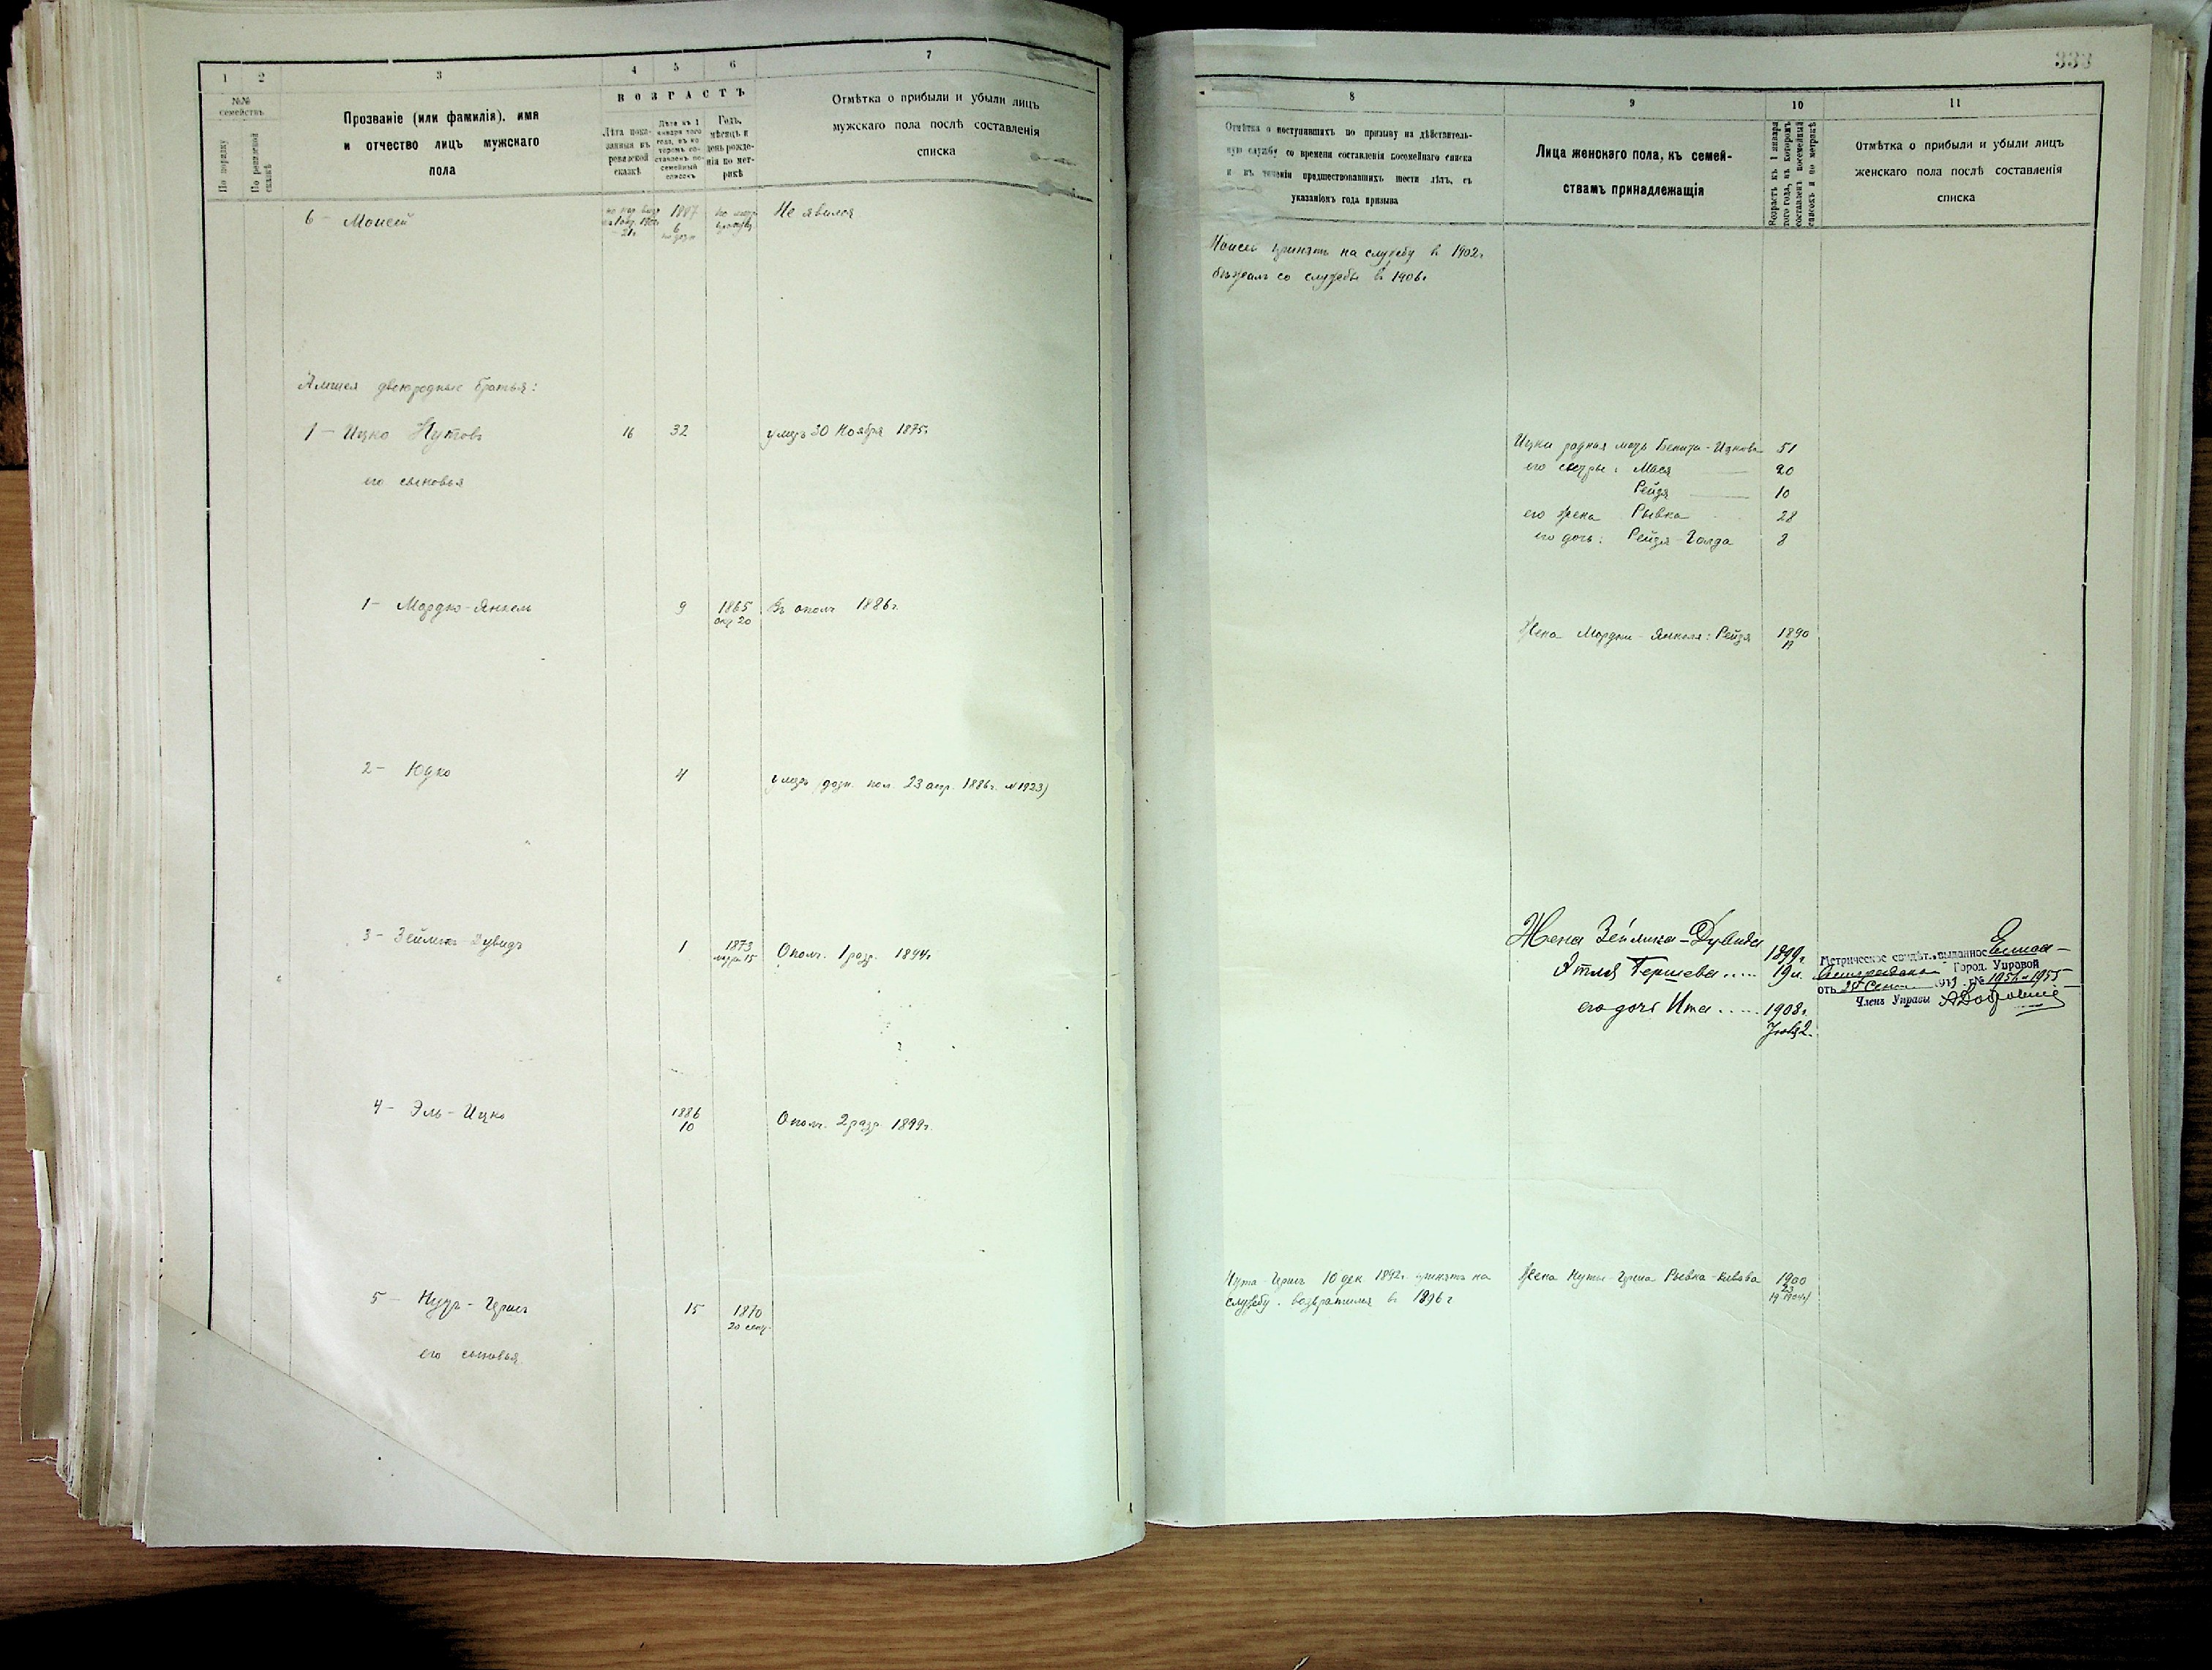 1 2 3 4 5 6 7
№№ семействъ
По порядку
По ревизской сказкѣ
Прозваніе (или фамилія), имя
и отчество лицъ мужскаго
пола
ВОЗРАСТЪ
Лѣта пока-
занныя въ
ревизской
сказкѣ
Лѣта къ 1
января того
года, въ ко-
торомъ со-
ставленъ по-
семейный
списокъ
Годъ,
мѣсяцъ и
день рожде-
нія по мет-
рикѣ
Отмѣтка о прибыли и убыли лицъ
мужскаго пола послѣ составленія
списка
6 - Моисей 1887 6 Не явился
двоюродные братья:
1 - Ицко Нутовъ 16 32 умеръ 30 Ноября 1875г.
его сыновья
1- Мордко-Янкель 9 1865 окт 20 Въ ополч 1886г.
2- Юдко 4 умеръ (дозн. пол. 23 апр. 1886г. №1923)
3- Зейликъ-Дувидъ 1 1873 марта 15 Ополч. 1 разр. 1894г.
4- Эль-Ицко 1886 10 Ополч. 2 разр. 1899г.
5- 15 1870 20 сент.
его сыновья
333
8 9 10 11
Отмѣтка о поступившихъ по призыву на дѣйствитель-
ную службу со времени составленія посемейнаго списка
и въ теченіи предшествовавшихъ шести лѣтъ, съ
указаніемъ года призыва
Лица женскаго пола, къ семей-
ствамъ принадлежащія
Возрастъ къ 1 января
того года, въ которомъ
составленъ посемейный
списокъ и по метрикѣ
Отмѣтка о прибыли и убыли лицъ
женскаго пола послѣ составленія
списка
Моисей принятъ на службу в 1902г
бѣжалъ со службы в 1906г
Ицки родная мать Ицкова 51
его сестры: Мася 20
Рейзя 10
его жена Рывка 28
его дочь: Рейзя-Голда 8
Жена Мордки-Янкеля: Рейзя 1890 19
Жена Зейлика-Дувида 1899г.
Этля Гершева..... 19л.
его дочь Ита..... 1908г.
Метрическое свидѣт., выданное
Город. Управой
отъ 1954 и 1955
Членъ Управы
10 дек 1892г. принятъ на
службу. возвратился в 1896г
Жена Рывка 1900 23